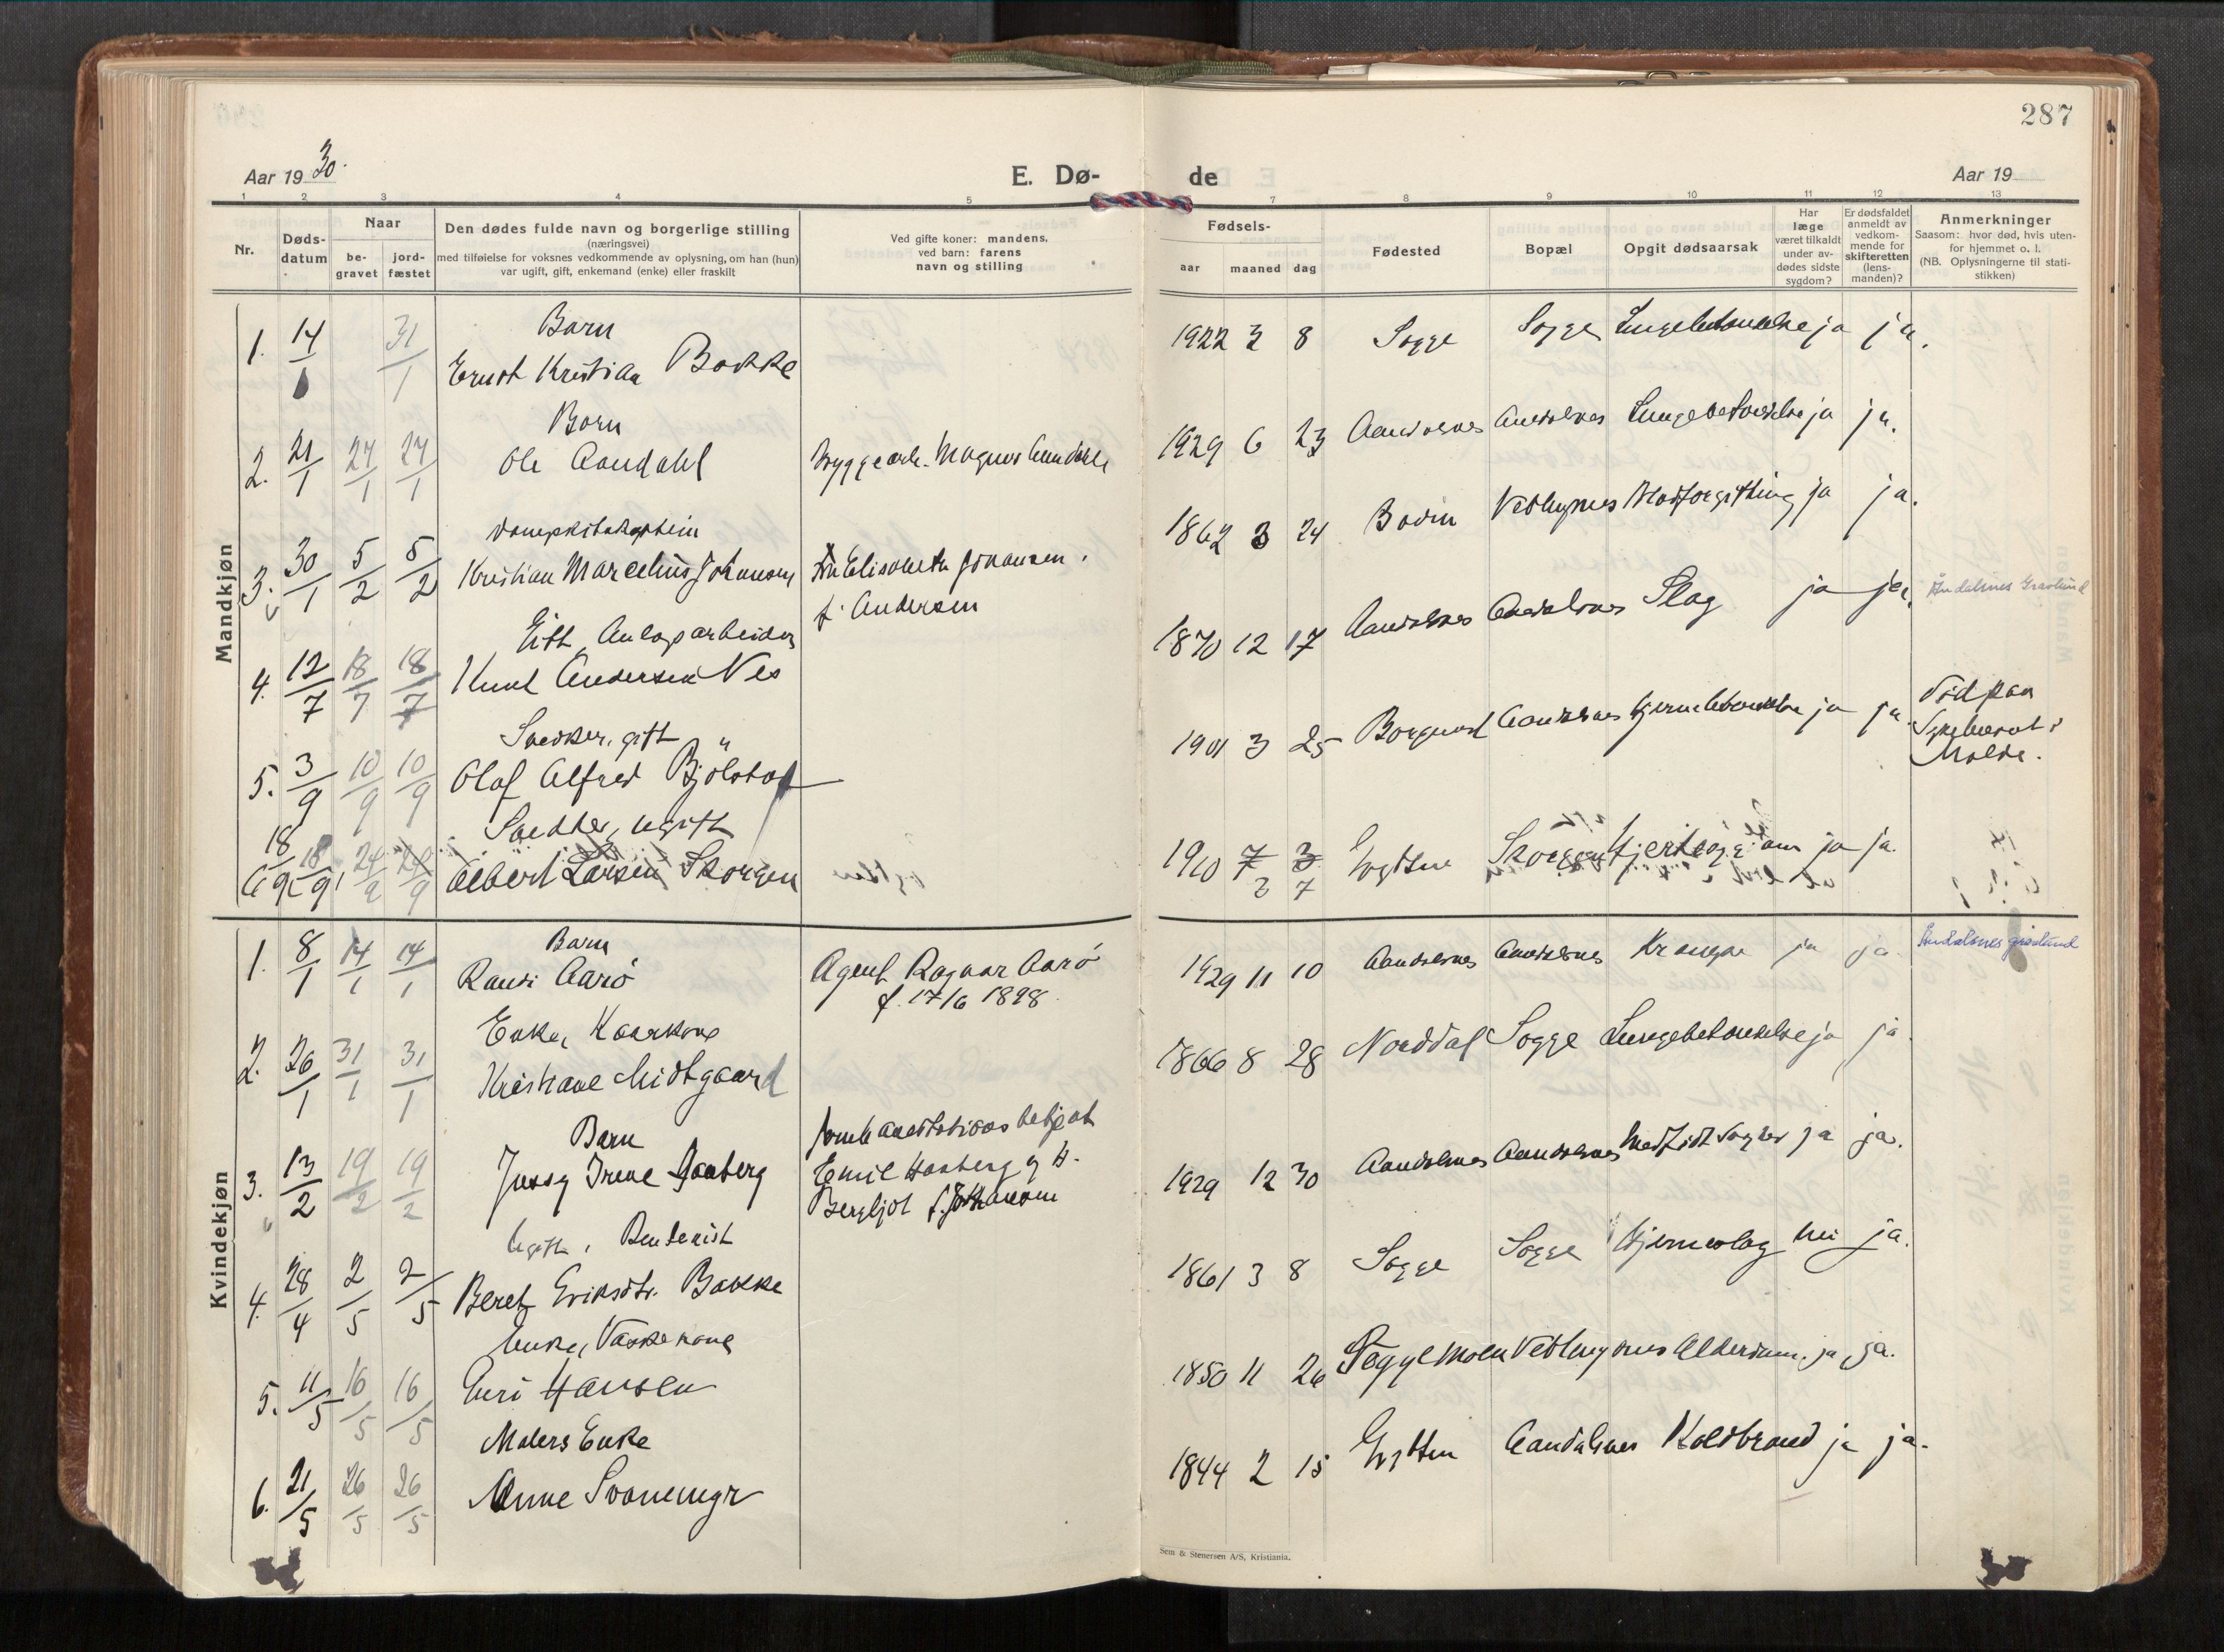 287
Aar 19 30.
E. Dø-
de
Aar 19
1 2 3 4 5 7 8 9 10 11 12 13
Nr.
Døds-
datum
Naar
be-
gravet
jord-
fæstet
Den dødes fulde navn og borgerlige stilling
(næringsvei)
med tilføielse for voksnes vedkommende av oplysning, om han (hun)
var ugift, gift, enkemand (enke) eller fraskilt
Ved gifte koner: mandens,
ved barn: farens
navn og stilling
Fødsels-
aar maaned dag
Fødested
Bopæl
Opgit dødsaarsak
Har
læge
været tilkaldt
under av-
dødes sidste
sygdom?
Er dødsfaldet
anmeldt av
vedkom-
mende for
skifteretten
(lens-
manden)?
Anmerkninger
Saasom: hvor død, hvis uten-
for hjemmet o. l.
(NB. Oplysningerne til stati-
stikken)
Mandkjøn
Barn
1. 14/1 31/1 Ernst Kristian Bakke 1922 3 8 Sogge Sogge Lungebetændelse ja ja.
Barn
2. 21/1 27/1 27/1 Ole Aandahl Byggearb. Magnus Aandahl 1929 6 23 Aandalsnes Aandalsnes Lungebetændelse ja ja.
Dampskibskaptein
3. 30/1 5/2 5/2 Kristian Marcelius Johansen Elisabeth Johansen. 1862 3 24 Bodin Veblugnes Blodforgiftning ja ja.
f. Andersen
Gift, Anlægsarbeider
4. 12/7 18/7 18/7 Knut Andersen Nes 1870 12 17 Aandalsnes Aandalsnes Slag ja ja. Åndalsnes Gravlund
Snedker, gift
5. 3/9 10/9 10/9 Olaf Alfred Bjølstad 1901 3 25 Borgund Aandalsnes Hjernebetændelse ja ja. Død paa
Sykehuset i
Molde.
Snedker, ugift
6 18/9 18/9 24/9 24/9 Albert Larsen Skorgen 1910 7 3 Grytten Skorgen Hjertesygdom ja ja.
3 7
Kvindekjøn
Barn
1. 8/1 14/1 14/1 Randi Aarø Agent Ragnar Aarø 1929 11 10 Aandalsnes Aandalsnes Krampe ja ja. Åndalsnes gravlund
f. 17/6 1898.
Enke, Kaarkone
2. 26/1 31/1 31/1 Kristiane Midtgaard 1866 8 28 Norddal Sogge Lungebetændelse ja ja.
Barn
Jernbanestations betjent
3. 13/2 19/2 19/2 Jussy Irene Haaberg Emil Haaberg og H. 1929 12 30 Aandalsnes Aandalsnes Medfødt Svaghet ja ja.
Bergljot f. Johansen
Ugift, Budeist
4. 28/4 2/5 2/5 Beret Eriksdtr. Bakke 1861 3 8 Sogge Sogge Hjerneslag nei ja.
Enke, Vaskekone
5. 11/5 16/5 16/5 Guri Hansen 1850 11 26 Soggemoen Veblugsnes Alderdom. ja ja.
Malers Enke
6. 21/5 26/5 26/5 Anne Svanemyr 1844 2 15 Grytten Aandalsnes Koldbrand ja ja.
Sem & Stenersen A/S, Kristiania.